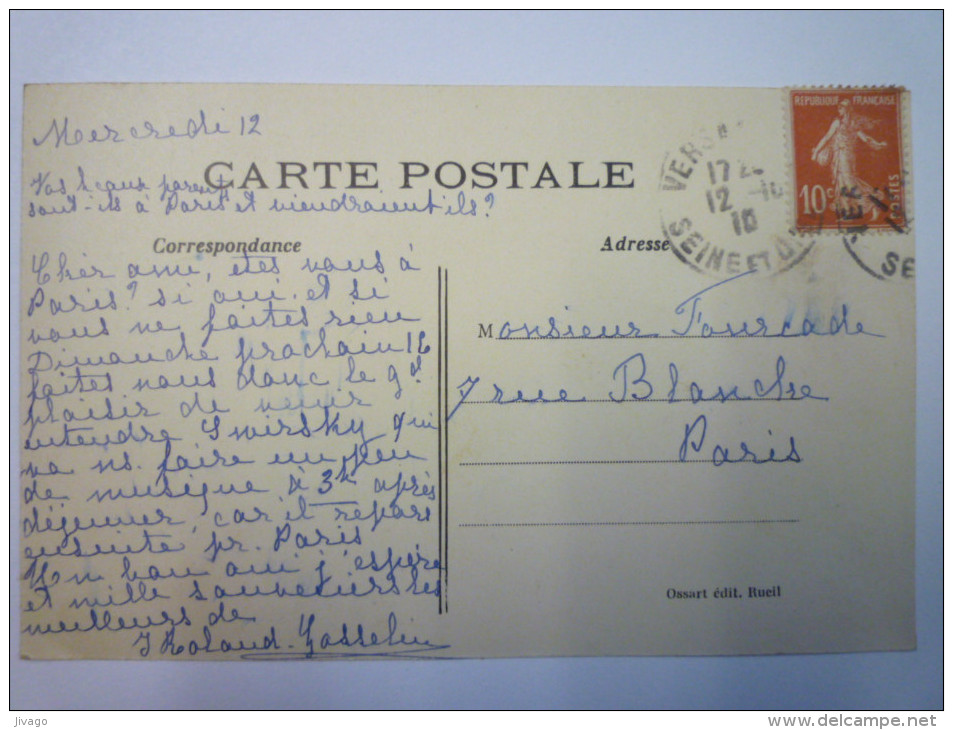 Mercredi 12
CARTE POSTALE
Vos beaux parents
sont-ils à Paris et viendraient ils?
Correspondance
Cher ami, êtes vous à
Paris? si oui. et si
vous ne faites rien
Dimanche prochain 16
faites nous donc le gd
plaisir de venir
entendre Swirsky qui
va ns. faire un peu
de musique à 3h après
déjeuner, car il repart
ensuite pr. Paris
Un bon oui j'espère
et mille souvenirs les
meilleurs de
J Roland-Gosselin
Adresse
Monsieur Fourcade
7 rue Blanche
Paris
Ossart édit. Rueil
REPUBLIQUE FRANÇAISE
10c
POSTES
VERS
17
12 -10
10
SEINE ET O
VER
SE
Jivago
www.delcampe.net